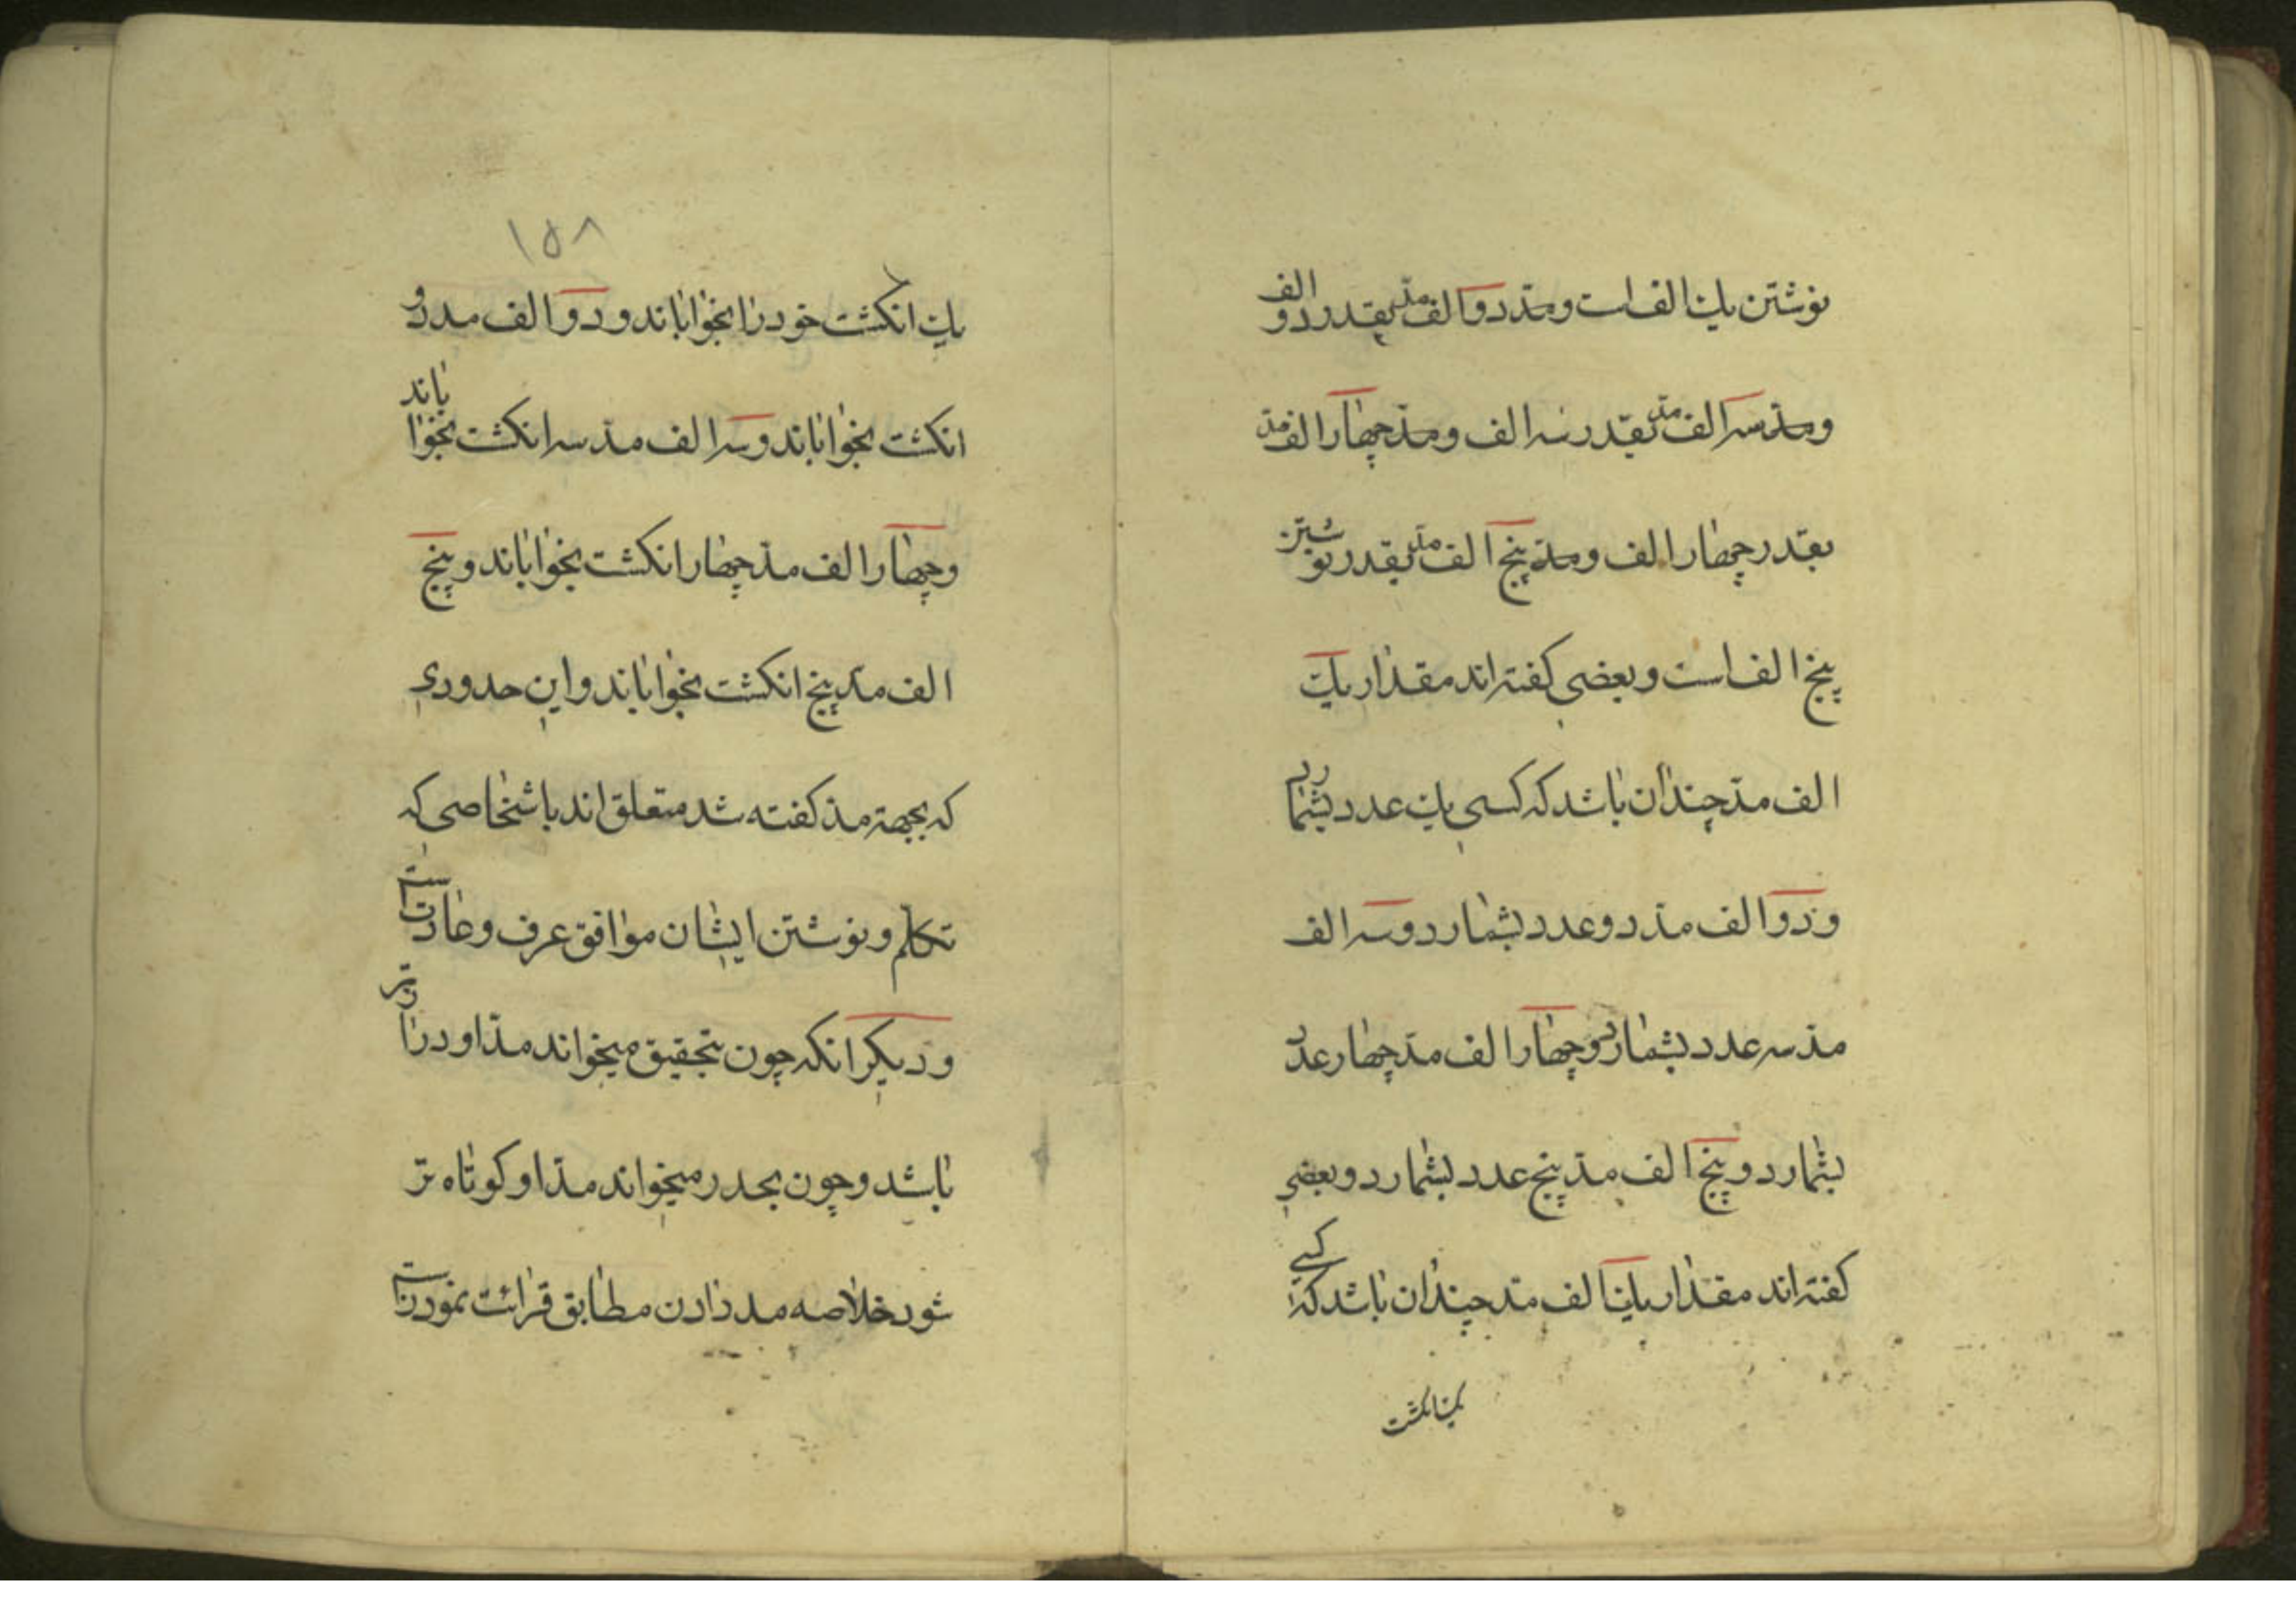 نوشتن یك الف است ومدّ دو الف مدّ بقدر دو الف
ومدّ سه الف مدّ بقدر سه الف ومدّ چهار الف مدّ
بقدر چهار الف ومدّ پنج الف مدّ بقدر نوشتن
پنج الف است وبعضی کفته اند مقدار یك
الف مدّ چندان باشد که کسی یك عدد بشمارد
ودو الف مدّ دو عدد بشمارد وسه الف
مدّ سه عدد بشمارد وچهار الف مدّ چهار عدد
بشمارد وپنج الف مدّ پنج عدد بشمارد وبعضی
کفته اند مقدار یك الف مدّ چندان باشد که کسی
یك انکشت
۱۵۸
یك انکشت خود را بخواباند ودو الف مد دو
انکشت بخواباند وسه الف مدّ سه انکشت بخواباند
وچهار الف مدّ چهار انکشت بخواباند وپنج
الف مدّ پنج انکشت بخواباند واین حدودی
که بجهة مدّ کفته شد متعلق اند باشخاصی که
تکلّم ونوشتن ایشان موافق عرف وعادت است
ودیکر انکه چون بتحقیق میخواند مدّ او درازتر
باشد وچون بحدر میخواند مدّ او کوتاه تر
شود خلاصه مد دادن مطابق قرائت نمودنست